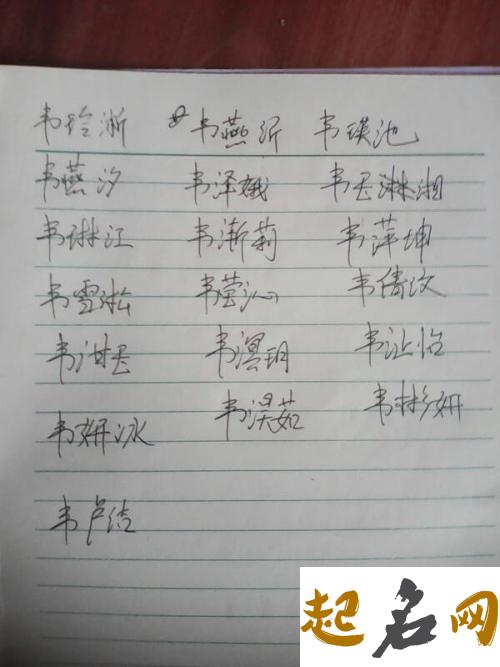 韦玲浙 韦燕沂 韦瑛池
韦燕汐 韦泽娥 韦丹淋湘
韦琳江 韦渐莉 韦萍坤
韦雪淞 韦莹沁 韦倩汶
韦湘丹 韦溟玥 韦沚怡
韦妍冰 韦淏茹 韦彬妍
韦卢洁
起名网